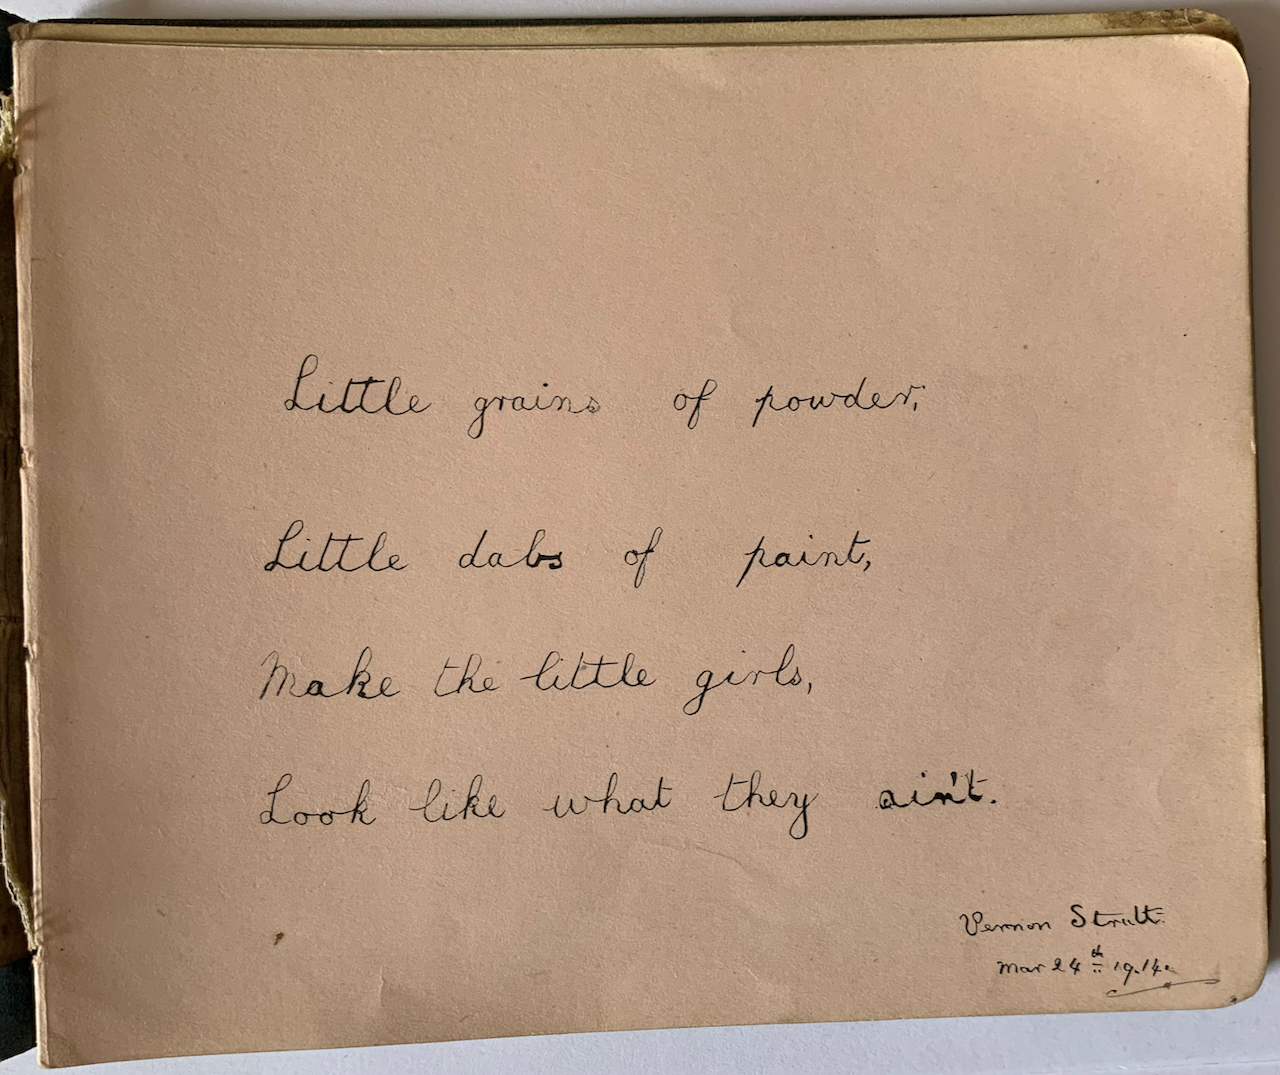 Little grains of powder,
Little dabs of paint,
Make the little girls,
Look like what they ain't.
Vernon Strutt.
Mar 24th 1914.